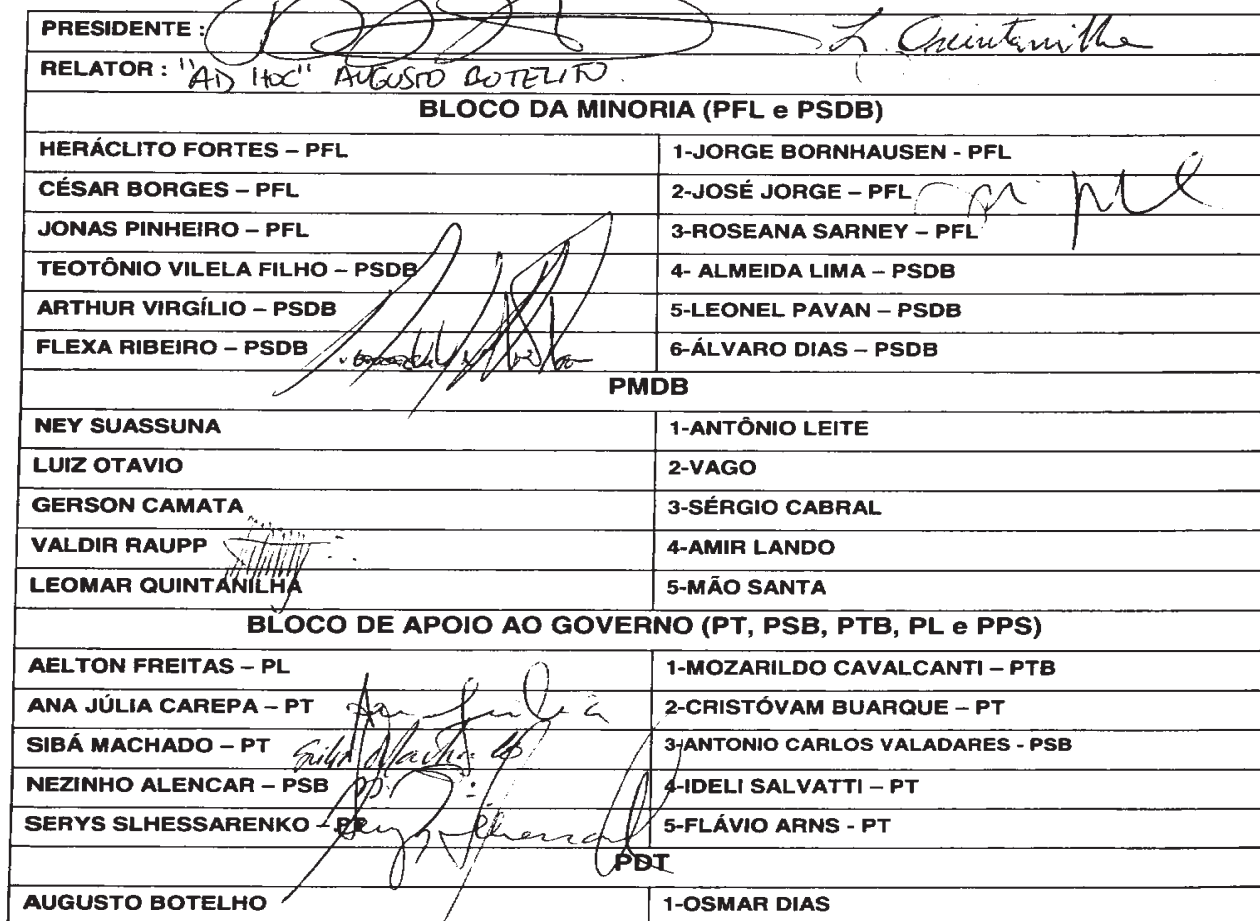 PRESIDENTE : L. Quintanilha
RELATOR : "AD HOC" AUGUSTO BOTELHO.
BLOCO DA MINORIA (PFL e PSDB)
HERÁCLITO FORTES – PFL 1-JORGE BORNHAUSEN - PFL
CÉSAR BORGES – PFL 2-JOSÉ JORGE – PFL
JONAS PINHEIRO – PFL 3-ROSEANA SARNEY – PFL
TEOTÔNIO VILELA FILHO – PSDB 4- ALMEIDA LIMA – PSDB
ARTHUR VIRGÍLIO – PSDB 5-LEONEL PAVAN – PSDB
FLEXA RIBEIRO – PSDB 6-ÁLVARO DIAS – PSDB
PMDB
NEY SUASSUNA 1-ANTÔNIO LEITE
LUIZ OTAVIO 2-VAGO
GERSON CAMATA 3-SÉRGIO CABRAL
VALDIR RAUPP 4-AMIR LANDO
LEOMAR QUINTANILHA 5-MÃO SANTA
BLOCO DE APOIO AO GOVERNO (PT, PSB, PTB, PL e PPS)
AELTON FREITAS – PL 1-MOZARILDO CAVALCANTI – PTB
ANA JÚLIA CAREPA – PT Ana Júlia 2-CRISTÓVAM BUARQUE – PT
SIBÁ MACHADO – PT Sibá Machado 3-ANTONIO CARLOS VALADARES - PSB
NEZINHO ALENCAR – PSB 4-IDELI SALVATTI – PT
SERYS SLHESSARENKO – PT Serys Slhessarenko 5-FLÁVIO ARNS - PT
PDT
AUGUSTO BOTELHO 1-OSMAR DIAS